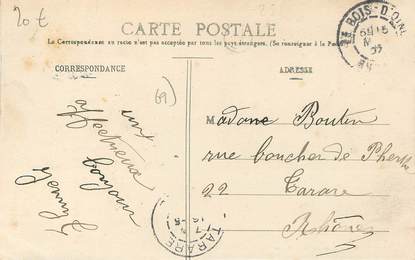 20 €
CARTE POSTALE
La Correspondance au recto n'est pas acceptée par tous les pays étrangers. (Se renseigner à la Poste)
CORRESPONDANCE
ADRESSE
LE BOIS-D'OINGT
69
un
affectueux
bonjour
Jenny
Madame Boutin
rue boucher de Perthes
22 Tarare
Rhône
TARARE